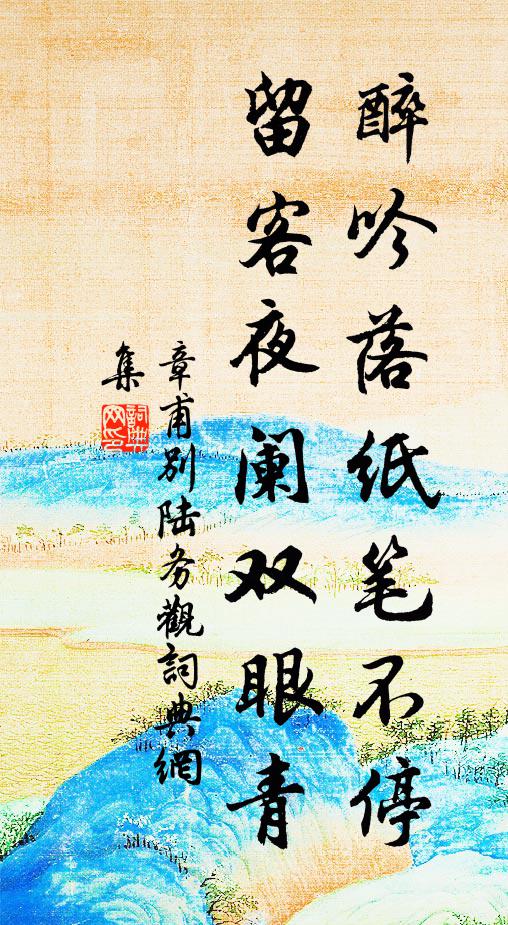 醉吟落纸笔不停
留客夜阑双眼青
章甫别陆务觀詞典網
集
詞典网印